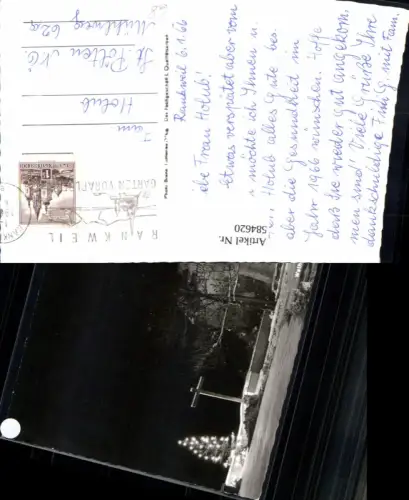 Rankweil 6.1.66
Liebe Frau Holub!
Etwas verspätet aber vom
möchte ich Ihnen u.
Holub alles Gute bes.
aber die Gesundheit im
Jahr 1966 wünschen. Hoffe
daß Sie wieder gut angekom-
men sind! Viele Grüße Ihre
dankschuldige Frau G. mit Fam.
Fam
Holub
St. Pölten NÖ
Mühlweg 62a
RANKWEIL
GARTEN VORARL
Artikel Nr.
584620